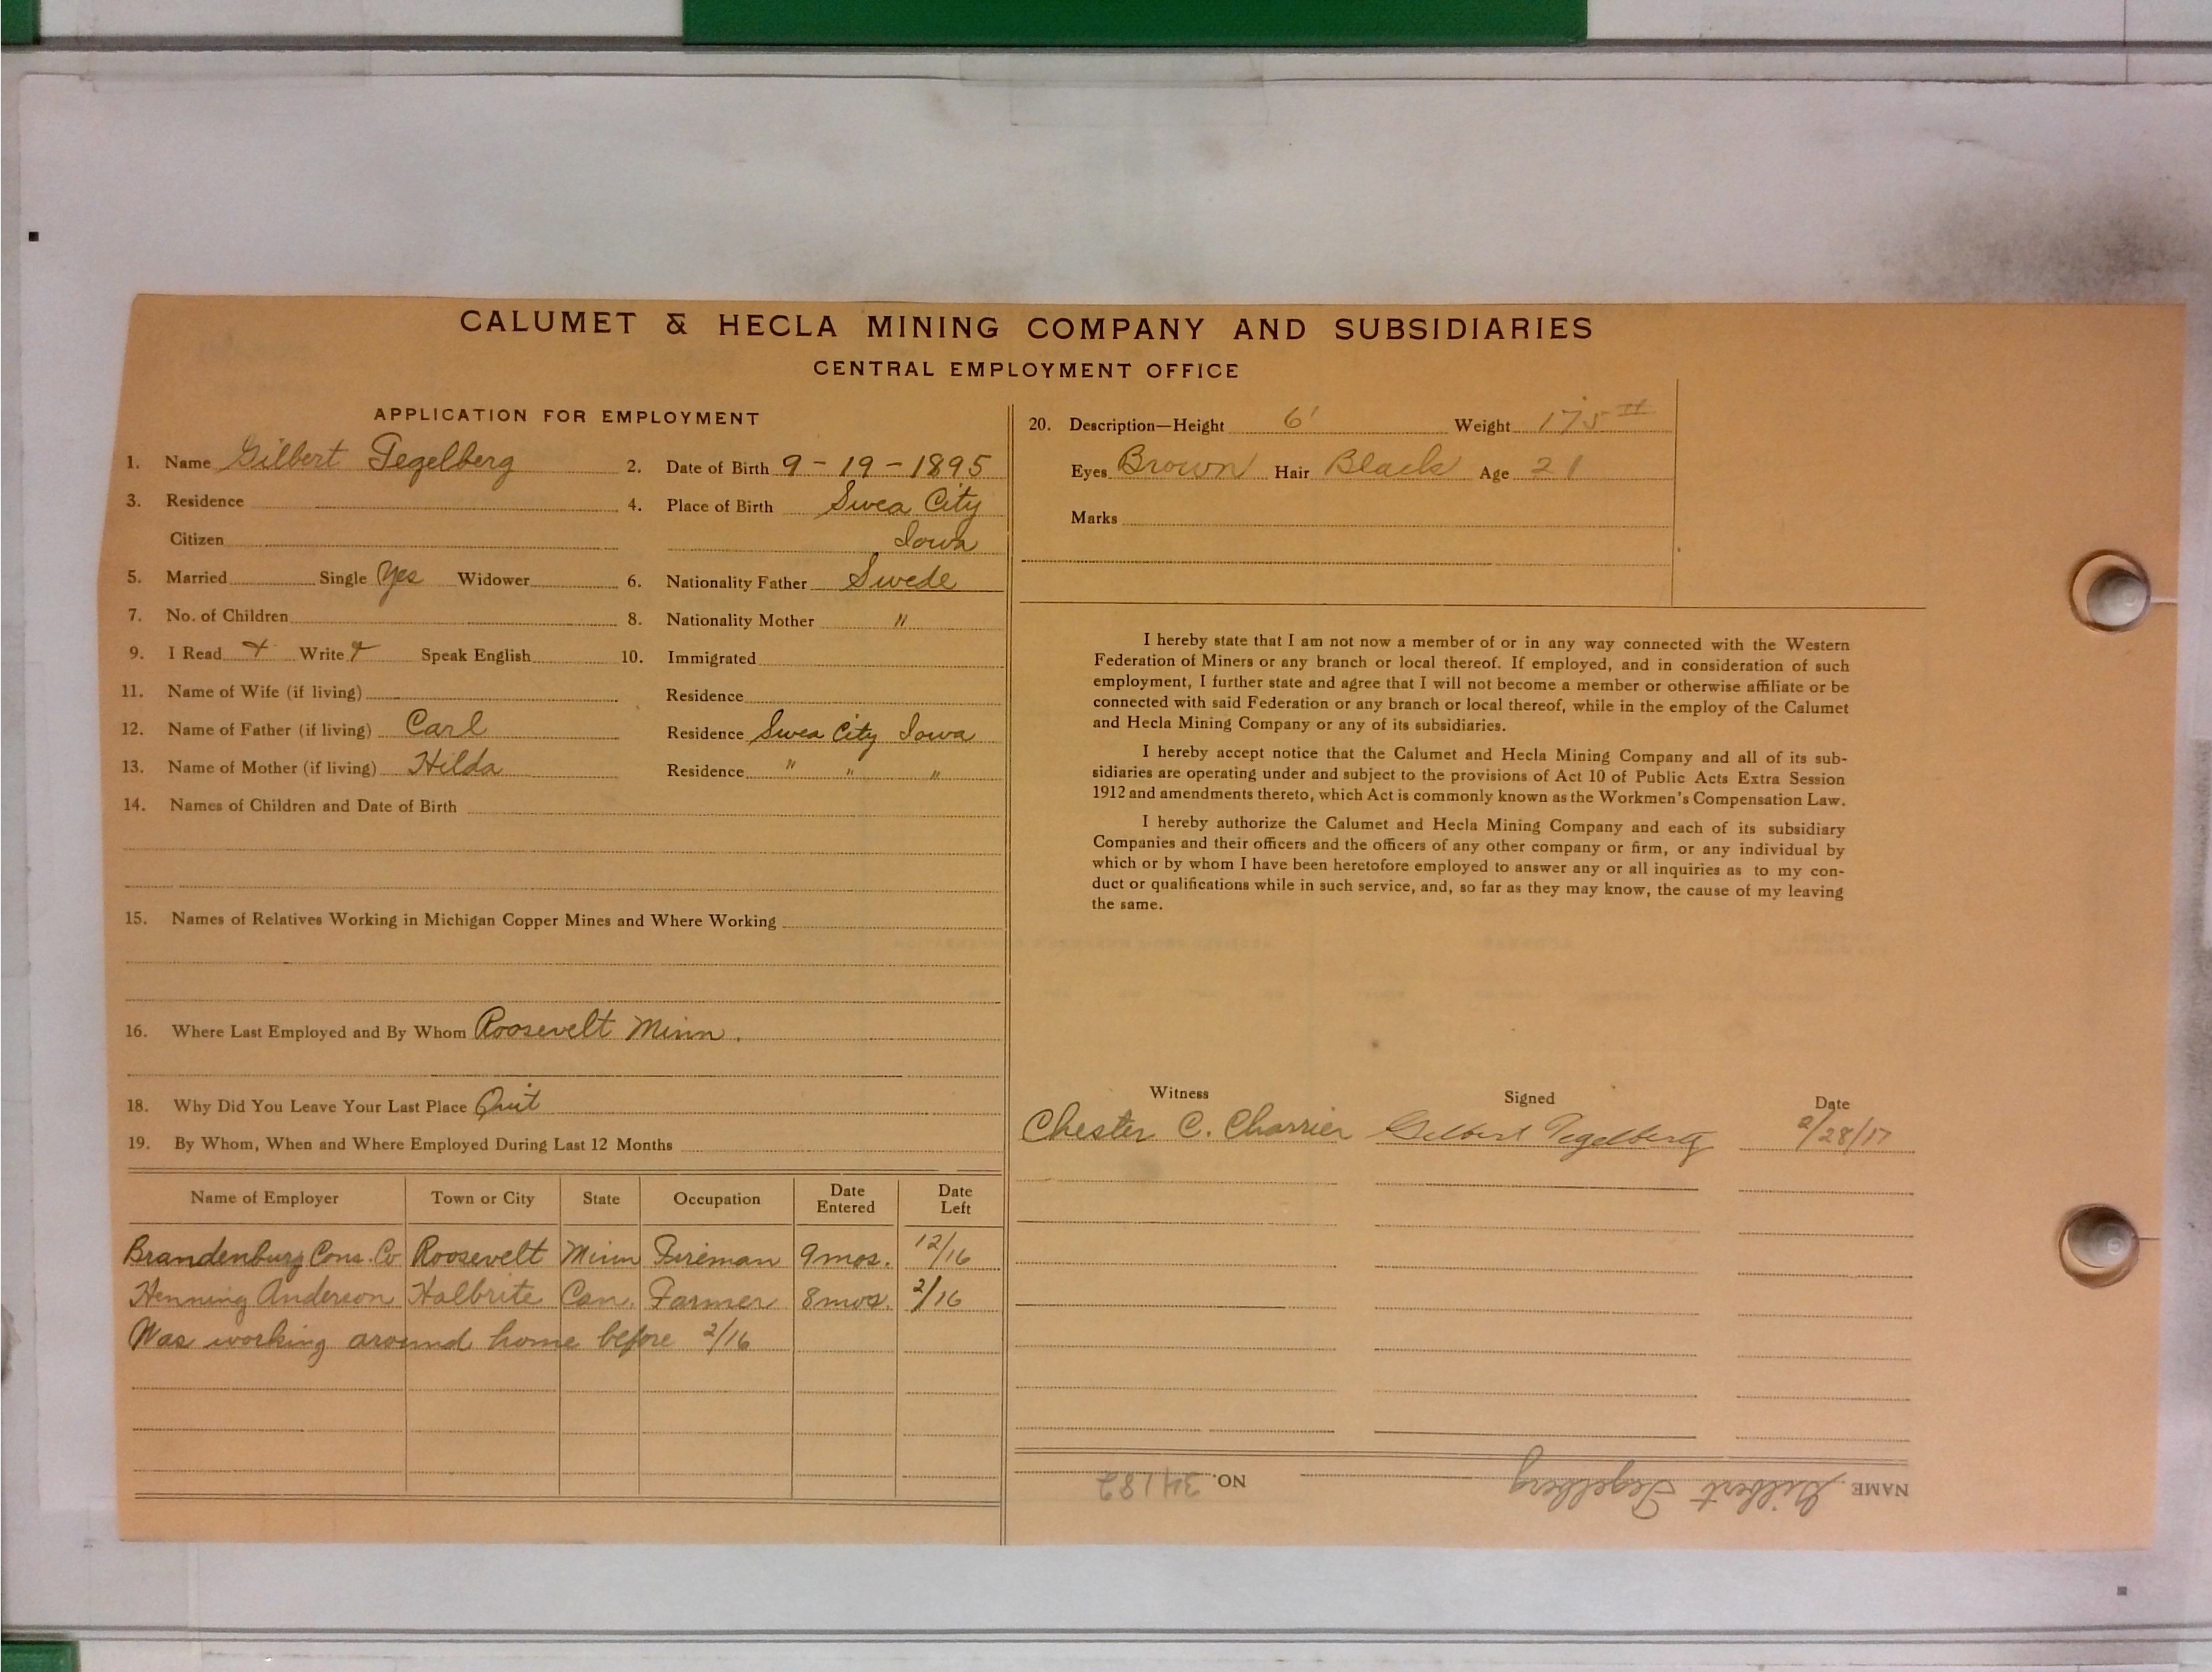 CALUMET & HECLA MINING COMPANY AND SUBSIDIARIES
CENTRAL EMPLOYMENT OFFICE
APPLICATION FOR EMPLOYMENT
1. Name Gilbert Tegelberg 2. Date of Birth 9-19-1895
3. Residence 4. Place of Birth Swea City
Citizen Iowa
5. Married Single Yes Widower 6. Nationality Father Swede
7. No. of Children 8. Nationality Mother "
9. I Read + Write + Speak English 10. Immigrated
11. Name of Wife (if living) Residence
12. Name of Father (if living) Carl Residence Swea City Iowa
13. Name of Mother (if living) Hilda Residence " " "
14. Names of Children and Date of Birth
15. Names of Relatives Working in Michigan Copper Mines and Where Working
16. Where Last Employed and By Whom Roosevelt Minn.
18. Why Did You Leave Your Last Place Quit
19. By Whom, When and Where Employed During Last 12 Months
Name of Employer Town or City State Occupation Date Entered Date Left
Brandenburg Cons. Co Roosevelt Minn Fireman 9 mos. 12/16
Henning Anderson Halbrite Can. Farmer 8 mos. 2/16
Was working around home before 2/16
20. Description—Height 6' Weight 175#
Eyes Brown Hair Black Age 21
Marks
I hereby state that I am not now a member of or in any way connected with the Western
Federation of Miners or any branch or local thereof. If employed, and in consideration of such
employment, I further state and agree that I will not become a member or otherwise affiliate or be
connected with said Federation or any branch or local thereof, while in the employ of the Calumet
and Hecla Mining Company or any of its subsidiaries.
I hereby accept notice that the Calumet and Hecla Mining Company and all of its sub-
sidiaries are operating under and subject to the provisions of Act 10 of Public Acts Extra Session
1912 and amendments thereto, which Act is commonly known as the Workmen's Compensation Law.
I hereby authorize the Calumet and Hecla Mining Company and each of its subsidiary
Companies and their officers and the officers of any other company or firm, or any individual by
which or by whom I have been heretofore employed to answer any or all inquiries as to my con-
duct or qualifications while in such service, and, so far as they may know, the cause of my leaving
the same.
Witness Signed Date
Chester C. Charrier Gilbert Tegelberg 2/28/17
NAME Gilbert Tegelberg NO. 34182